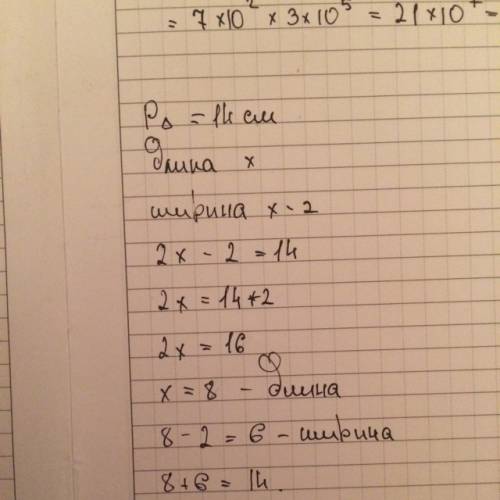 = 7×10² × 3×10⁵ = 21×10⁷ =
P△ = 14 см
Длина x
ширина x - 2
2x - 2 = 14
2x = 14+2
2x = 16
x = 8 - Длина
8 - 2 = 6 - ширина
8+6 = 14.